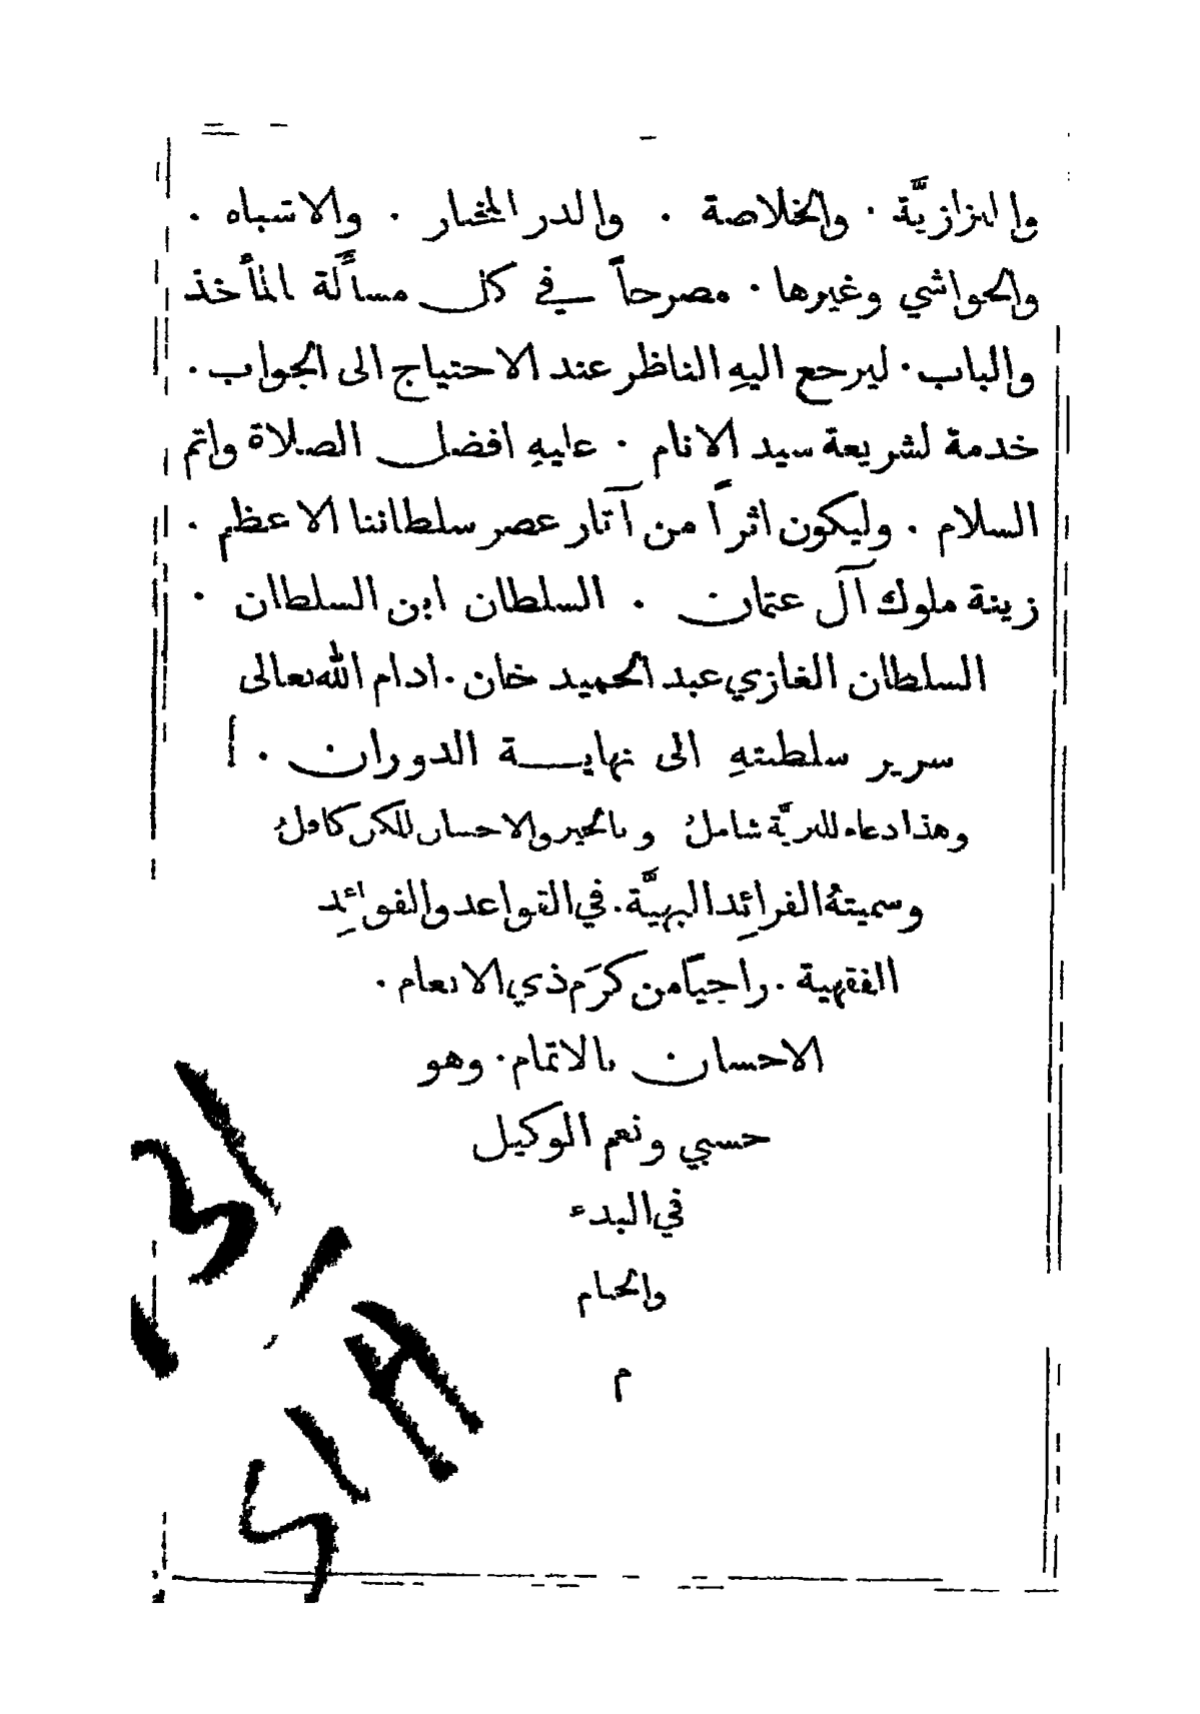 والبزازيَّة . والخلاصة . والدر المختار . والاشباه .
والحواشي وغيرها . مصرحاً في كل مسألة المأخذ
والباب . ليرجع اليهِ الناظر عند الاحتياج الى الجواب .
خدمة لشريعة سيد الانام . عليهِ افضل الصلاة واتم
السلام . وليكون اثراً من آثار عصر سلطاننا الاعظم .
زينة ملوك آل عثمان . السلطان ابن السلطان .
السلطان الغازي عبد الحميد خان . ادام الله تعالى
سرير سلطنتهِ الى نهايــة الدوران .
وهذا دعاء للبريَّة شاملُ وبالخير والاحسان للكل كافلُ
وسميتهُ الفرائِد البهيَّة . في القواعد والفوائِد
الفقهية . راجياً من كرَم ذي الانعام .
الاحسان بالاتمام . وهو
حسبي ونعم الوكيل
في البدء
والختام
م
SIA